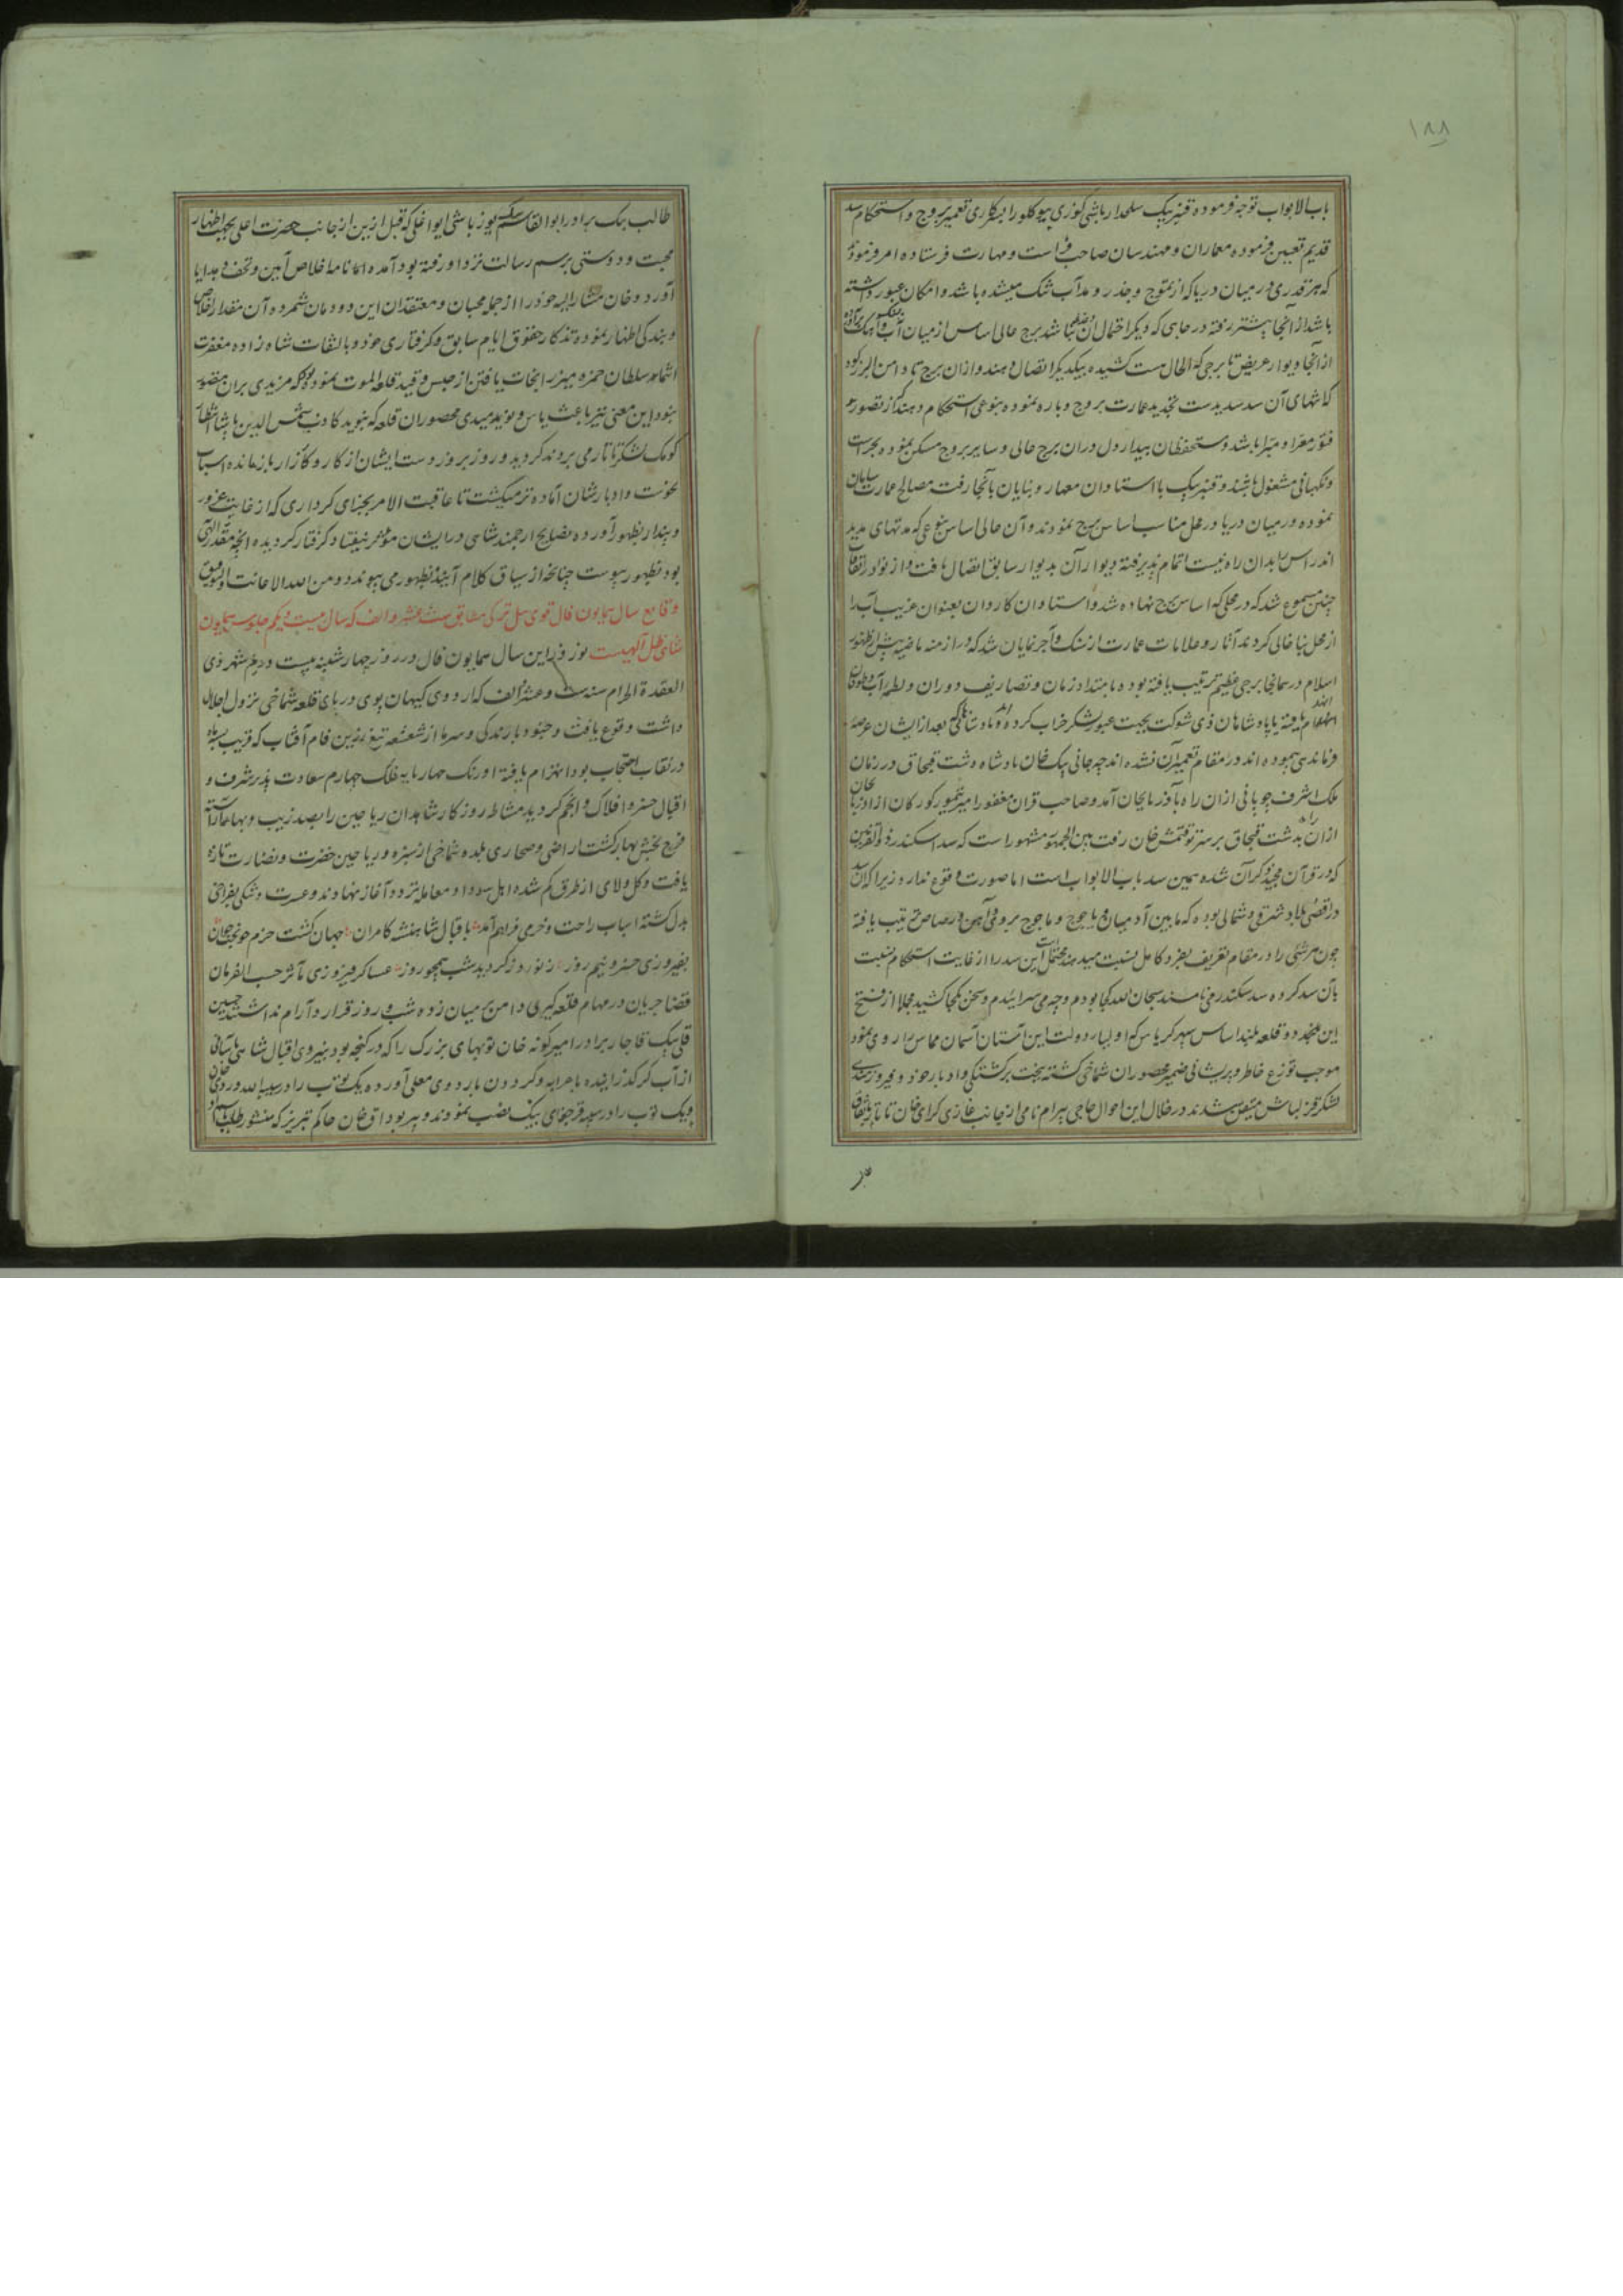 ۱۸۸
باب الابواب توجه فرموده قنبر بیک سلحدار باشی کوزی بیوکلو را بسرکاری تعمیر بروج و استحکام سد
قدیم تعیین فرموده معماران و مهندسان صاحب فراست و مهارت فرستاده امر فرمودند
که هر قدری در میان دریا که از تموج و جذر و مد آب تنک میشده باشد و امکان عبور داشته
باشد از آنجا پیشتر رفته در جایی که دیگر احتمال آن نباشد برج عالی اساس از میان آب
از آنجا دیوار عریض تا برجی که الحال هست کشیده بیکدیگر اتصال دهند و از آن برج تا دامن البرز کوه
که انتهای آن سد سدیدست تجدید عمارت بروج و باره نموده بنوعی استحکام دهند که از تصور
فتور معرا و مبرا باشد و مستحفظان بیدار دل در ان برج عالی و سایر بروج مسکن نموده بحراست
و نکهبانی مشغول باشند و قنبر بیک با استادان معمار و بنایان بآنجا رفت مصالح عمارت سامان
نموده در میان دریا در محل مناسب اساس برج نمودند و آن عالی اساس بنوعی که مدتهای مدید
اندراس بدان راه نیست اتمام پذیرفته دیوار آن بدیوار سابق اتصال یافت و از نوادر اتفاقات
چنین مسموع شد که در محلی که اساس برج نهاده شد و استادان کاردان بعنوان غریب آب را
از محل بنا خالی کردند آثار و علامات عمارت از سنک و آجر نمایان شد که در ازمنه ماضیه پیش از ظهور
اسلام در همانجا برجی عظیم ترتیب یافته بوده بامتداد زمان و تصاریف دوران و لطمه آب و طوفان
انهدام یافته یا پادشاهان ذی شوکت بجهت عبور لشکر خراب کرده اند و پادشاهانی که بعد از ایشان عرصه
فرماندهی پیموده اند در مقام تعمیر آن نشده اند چه جانی بیک خان پادشاه دشت قبچاق در زمان
ملک اشرف چوپانی از ان راه بآذربایجان آمد و صاحب قران مغفور امیر تیمور کورکان از آذربایجان
از ان راه بدشت قبچاق بر سر توقتمش خان رفت بین الجمهور مشهور است که سد اسکندر ذو القرنین
که در قرآن مجید ذکر آن شده همین سد باب الابواب است اما صورت وقوع ندارد زیرا که آن سد
در اقصی بلاد شرقی و شمالی بوده که ما بین آدمیان و یاجوج و ماجوج بروی و آهن و رصاص ترتیب یافته
چون هر شئی را در مقام تعریف بفرد کامل نسبت میدهند محتمل است این سد را از غایت استحکام نسبت
بآن سد کرده سد سکندر می نامند سبحان الله کجا بودم و چه می سرایئدم و سخن بکجا کشید مجملا از فتح
این مجدد و قلعه بلند اساس سپهر کریاس که اولیاء دولت این آستان آسمان مماس را روی نمود
موجب توزع خاطر و پریشانی ضمیر محصوران شماخی کشته به بخت برکشتکی و ادبار خود و فیروزمندی
لشکر قزلباش متیقن میشدند در خلال این احوال حاجی بیرام نامی از جانب غازی کرای خان تاتار باتفاق
طالب بیک برادر ابوالقاسم بیک یوزباشی ایوا غلی که قبل ازین از جانب حضرت اعلی بجهت اظهار
محبت و دوستی برسم رسالت نزد او رفته بود آمده نامه اخلاص آمین و تحف و هدایا
آورد و خان مشار الیه خود را از جمله محبان و معتقدان این دودمان شمرده آن مقدار اخلاص
و بندکی اظهار نموده تذکار حقوق ایام سابق و کرفتاری خود و بالتفات شاه زاده مغفرت
انتماء سلطان حمزه میرزا نجات یافتن از حبس و قید قلعه الموت نموده بود که مزیدی بر ان متصور
نبود این معنی نیز باعث یاس و نویدمیدی محصوران قلعه که بنوید کاذب شمس الدین پاشا انتظار
کومک لشکر تاتار می بردند کردید و روز بروز دست ایشان از کار و کارزار باز مانده اسباب
نحوست و ادبارشان آماده تر میکشت تا عاقبت الامر بجزای کرداری که از غایت غرور
و پندار بظهور آورده نصایح ارجمند شاهی در ایشان مؤثر نیفتاد کرفتار کردیده آنچه مقدر الهی
بود بظهور پیوست چنانچه از سیاق کلام آینده بظهور می پیوندد و من الله الاعانت و التوفیق
وقایع سال همایون فال قوی ئیل ترکی مطابق ست عشر و الف که سال بیست و یکم جلوس همایون
شاهی ظل الهیست نوروز این سال همایون فال در روز چهارشنبه بیست و دویم شهر ذی
القعدة الحرام سنه ست و عشر و الف که اردوی کیهان پوی در پای قلعه شماخی نزول اجلال
داشت وقوع یافت و جنود بارندکی و سرما از شعشعه تیغ زرین فام آفتاب که قریب بسه ماه
در نقاب احتجاب بود انهزام یافته اورنک چهار پایه فلک چهارم سعادت پذیر شرف و
اقبال خسرو افلاک و انجم کردید مشاطه روزکار شاهدان ریاحین را بصد زیب و بها بیاراسته
فرح بخش بهار کشت اراضی و صحاری بلده شماخی از سبزه و ریاحین خضرت و نضارت تازه
یافت و کل و لای از طرق کم شده اهل سودا و معامله تردد آغاز نهادند و عسرت و تنکی بفراخی
بدل کشته اسباب راحت و خرمی فراهم آمد باقبال شاهنشه کامران جهان کشت خرم چو بخت جوان
بفیروزی خسرو نیم روز ز نوروز کردید شب همچو روز عساکر فیروزی مآثر حسب الفرمان
قضا جریان در مهام قلعه کیری دامن بر میان زده شب و روز قرار و آرام نداشتند حسین
قلی بیک قاجار برادر امیر کونه خان توپهای بزرک را که در کنجه بود بنیروی اقبال شاهی بآسانی
از آب کر کذرانیده با عرابه و کردون باردوی معلی آورده یک توپ را در سیبه الله ویردی خان
و یک توپ را در سیبه قرچقای بیک نصب نمودند و پیر بوداق خان حاکم تبریز که منشور طلب باسم او